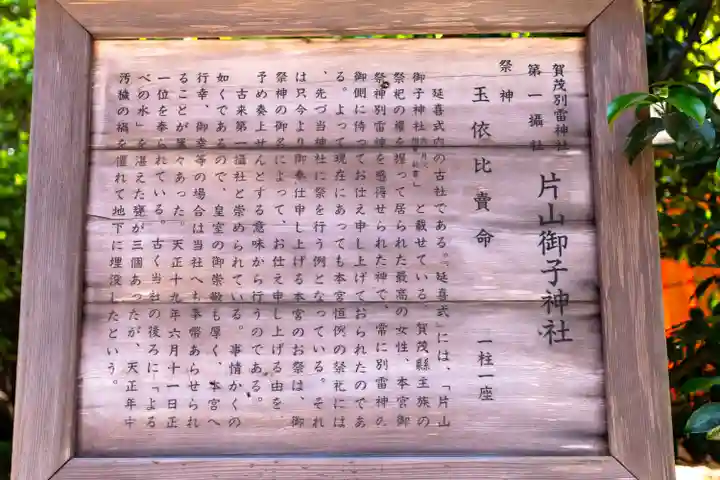 賀茂別雷神社
第一攝社
片山御子神社
祭神
玉依比賣命
一柱一座
延喜式内の古社である。『延喜式』には、「片山
御子神社 」と載せている、賀茂縣主族の
祭祀の權を握って居られた最高の女性、本宮御
祭神別雷神を感得せられた神で、常に別雷神の
御側に侍ってお仕え申し上げておられたのであ
る。よって現在にあっても本宮恒例の祭祀には
、先づ当神社に祭を行う例となっている。それ
は只今より御奉仕申し上げる本宮のお祭は、御
祭神の御名によって、お仕え申し上げる由を、
予め奏上せんとする意味から行うのである。
古来第一攝社と崇められている。事情かくの
如くであるので、皇室の御崇敬も厚く、本宮へ
行幸、御幸等の場合は当社へも奉幣あらせられ
ることが屡々あった。天正十九年六月十一日正
一位を奉られている。古く当社の後ろに「よる
べの水」を湛えた甕が三個あったが、天正年中
汚穢の禍を懼れて地下に埋没したという。